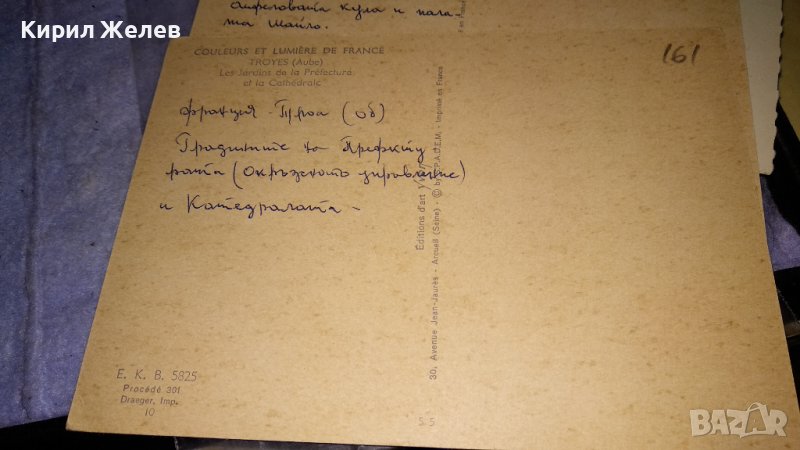 Кирил Желев
Айфеловата кула и пала-
та Шайо.
COULEURS ET LUMIÈRE DE FRANCE
TROYES (Aube)
Les Jardins de la Préfecture
et la Cathédrale
161
Франция - Троа (Об)
Градините на Префкту
рата (Окръжното управление)
и Катедралата -
Éditions d'art YVON
30, Avenue Jean-Jaurès - Arcueil (Seine) - © by S.P.A.D.E.M. - Imprimé en France
E. K. B. 5825
Procédé 301
Draeger, Imp.
10
S 5
BAZAR